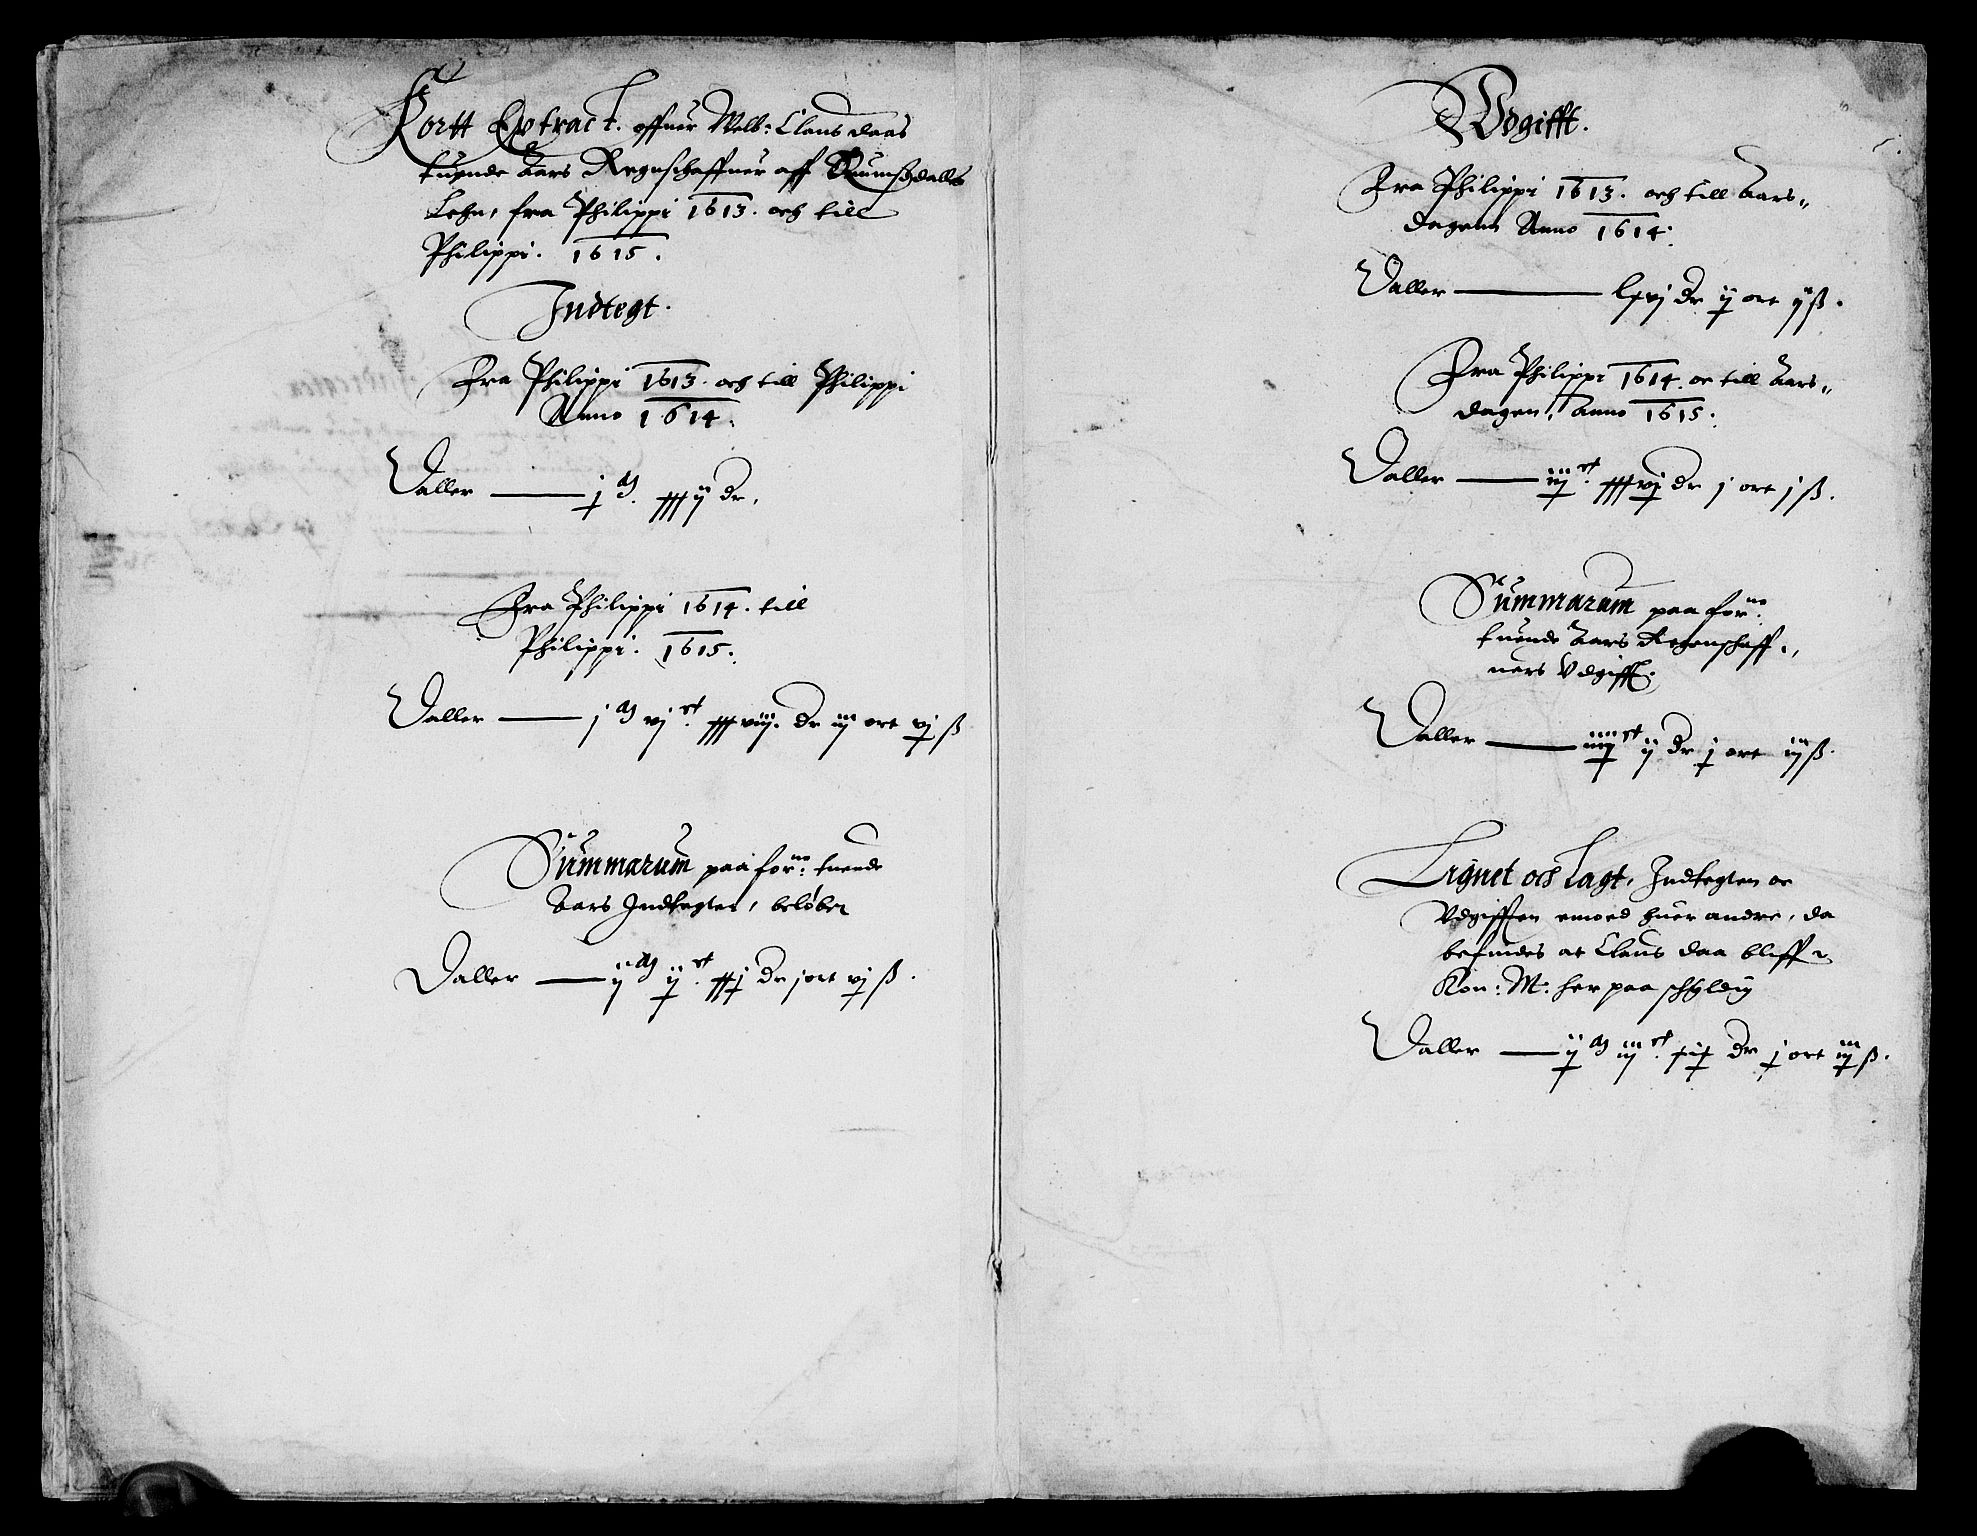 Kortt Extract. offuer Welb: Claus daas
tuende Aars Regnschaffuer aff Rumsdalls
Lehn, fra Philippi 1613. och till
Philippi. 1615.
Indtegt.
Fra Philippi 1613. och till Philippi
Anno 1614.
Daller — j M xxxij dr.
Fra Philippi 1614. till
Philippi. 1615.
Daller — j M vj ct. xxxviij. dr iij ort vj ß
Summarum paa forne: tuende
Aars Indtegter, beløber
Daller — ij M ij ct. xxj dr j ort vj ß.
Vdgifft.
Fra Philippi 1613. och till Aars„
dagenn Anno 1614.
Daller — lxvj dr ij ort ij ß.
Fra Philippi 1614. oc till Aars„
dagen, Anno 1615.
Daller — iij ct. xxxvj dr j ort j ß.
Summarum paa forne:
tuende Aars Regenschaff„
uers Vdgifft.
Daller — iiij ct ij dr j ort iij ß.
Lignet och Lagt, Indtegten oc
Vdgifften emoed huer andre, da
befindes at Claus daa bliffr
Kon: M: her paa schyldig
Daller — ij M iij ct. xix dr j ort iij ß.